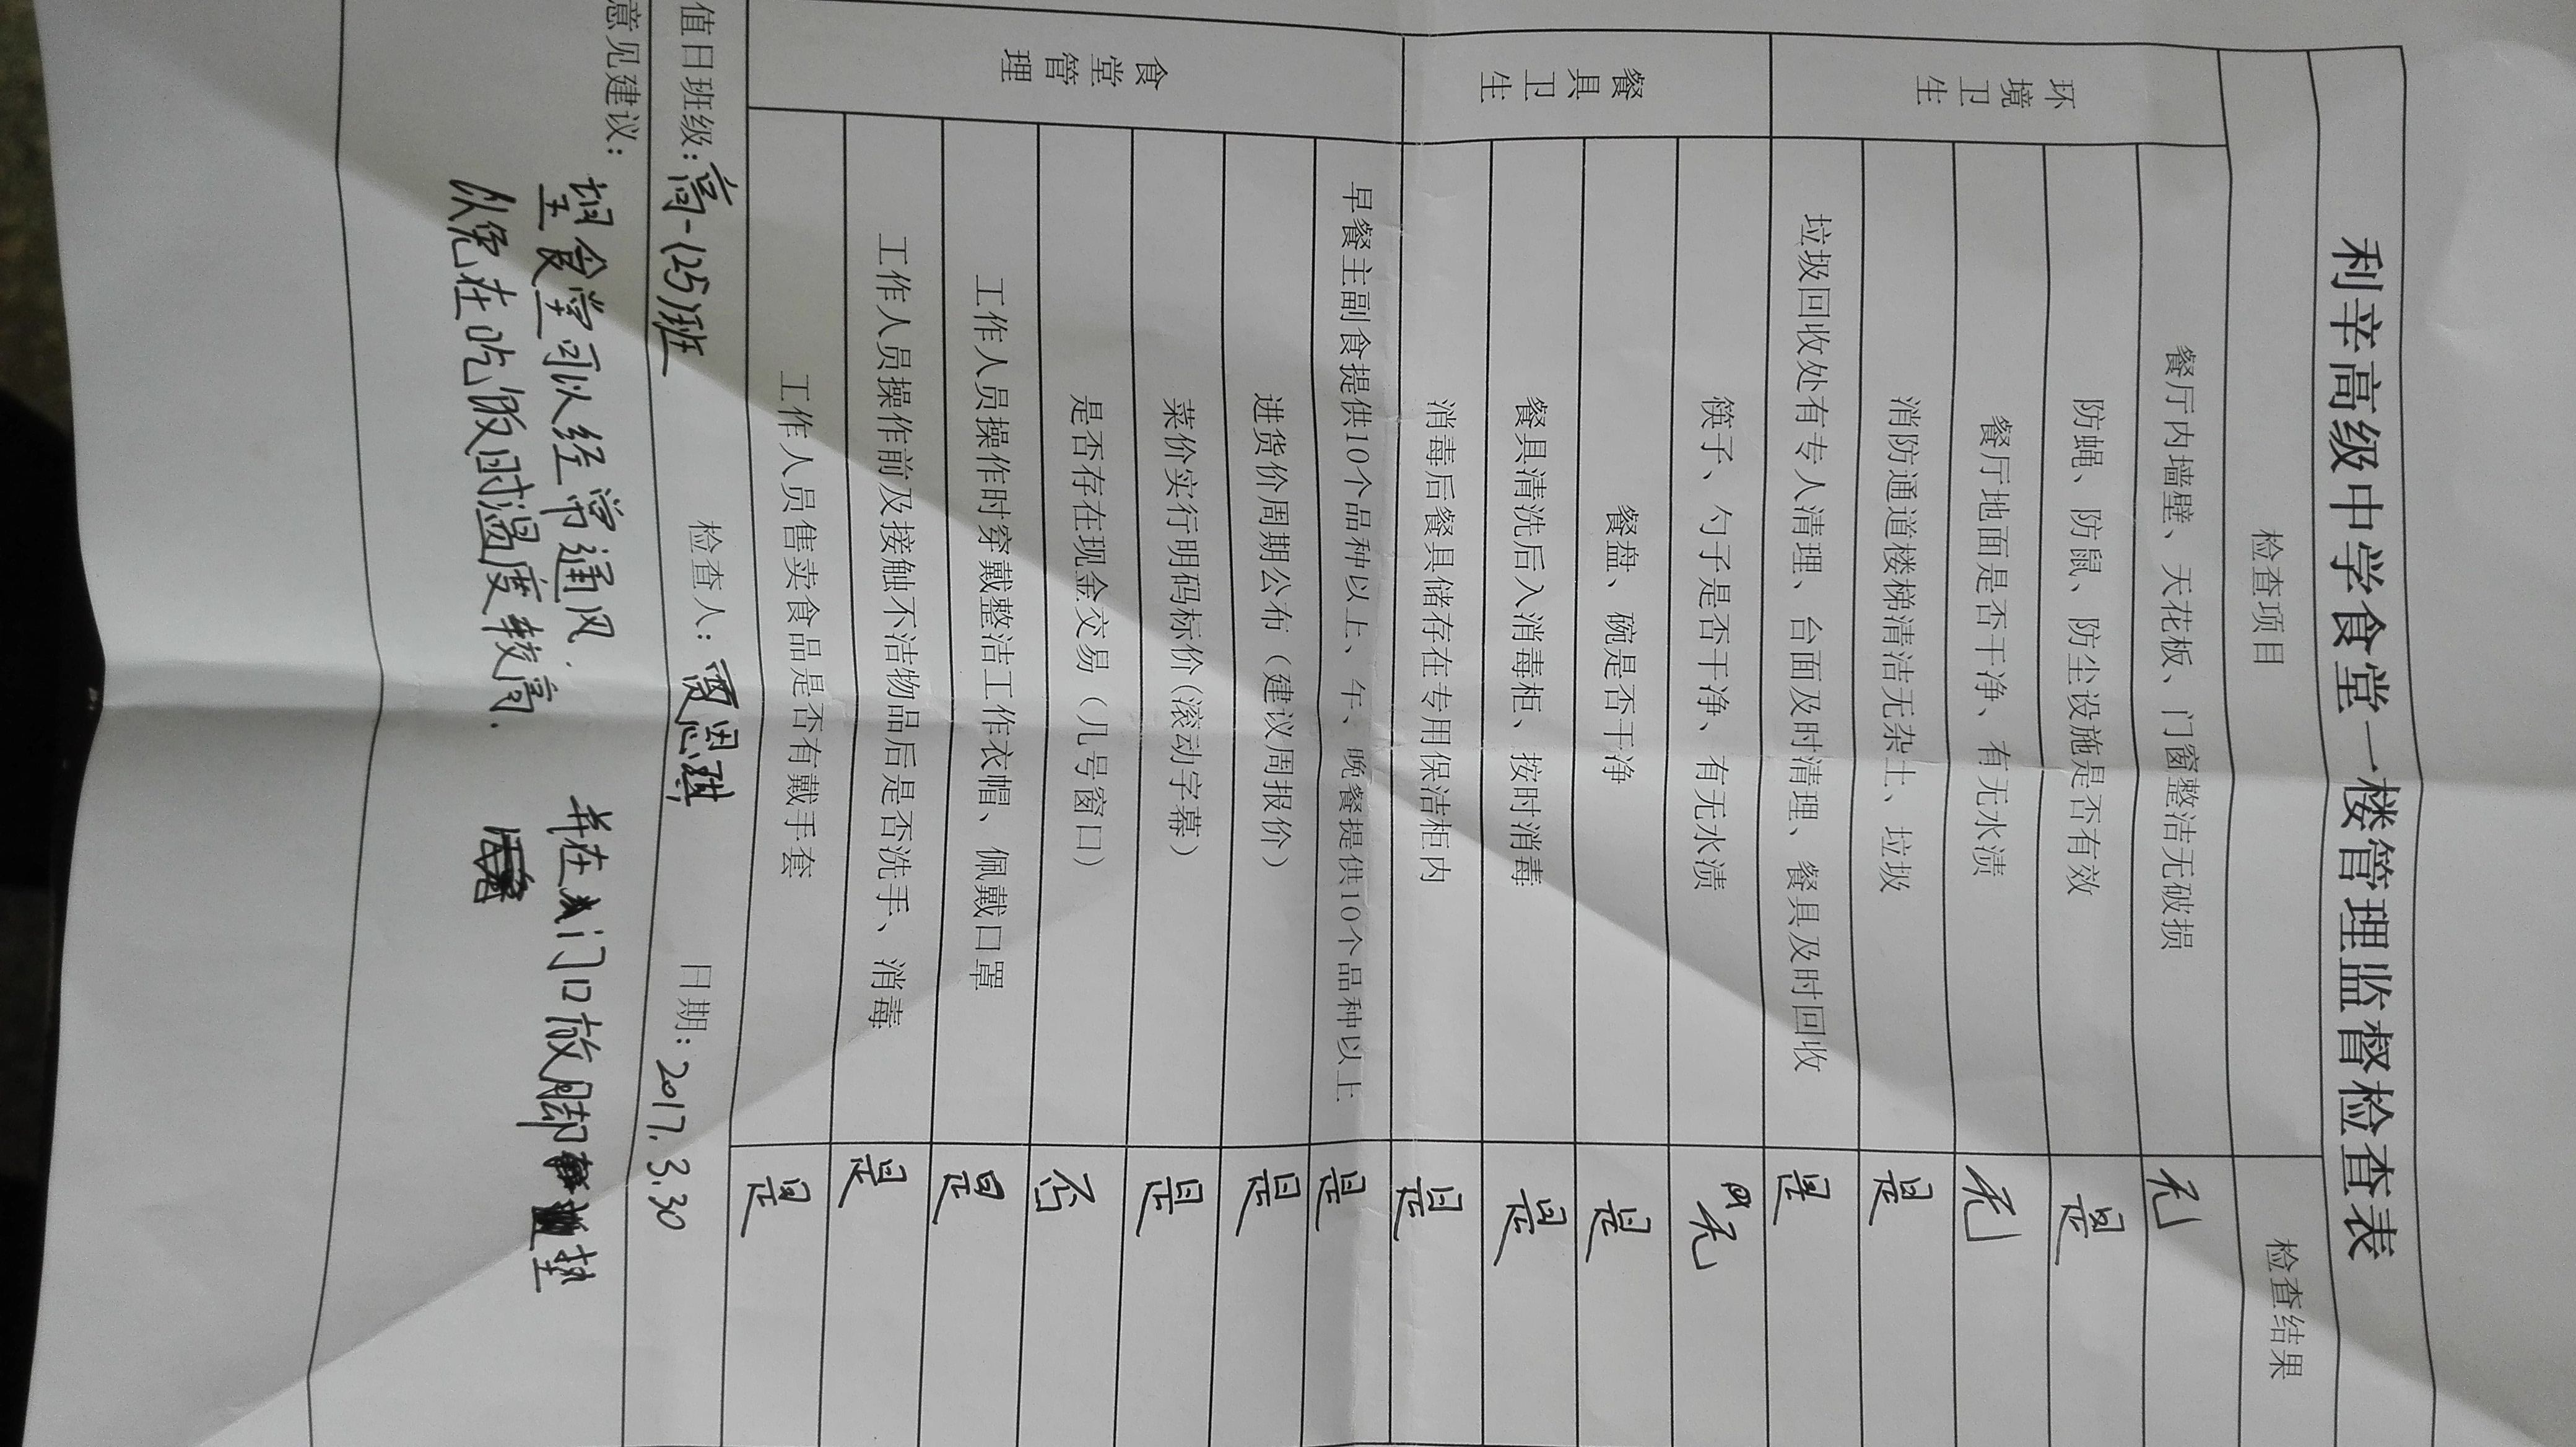 利辛高级中学食堂一楼管理监督检查表
检查项目 检查结果
环境卫生
餐厅内墙壁、天花板、门窗整洁无破损 无
防蝇、防鼠、防尘设施是否有效 是
餐厅地面是否干净、有无水渍 无
消防通道楼梯清洁无杂土、垃圾 是
垃圾回收处有专人清理、台面及时清理、餐具及时回收 是
餐具卫生
筷子、勺子是否干净、有无水渍 无
餐盘、碗是否干净 是
餐具清洗后入消毒柜、按时消毒 是
消毒后餐具储存在专用保洁柜内 是
食堂管理
早餐主副食提供10个品种以上、午、晚餐提供10个品种以上 是
进货价周期公布（建议周报价） 是
菜价实行明码标价(滚动字幕) 是
是否存在现金交易（几号窗口） 否
工作人员操作时穿戴整洁工作衣帽、佩戴口罩 是
工作人员操作前及接触不洁物品后是否洗手、消毒 是
工作人员售卖食品是否有戴手套 是
值日班级:高一(25)班 检查人: 贾思琪 日期: 2017.3.30
意见建议:
望食堂可以经常通风. 并在门口放脚垫
以免在吃饭时温度较高.